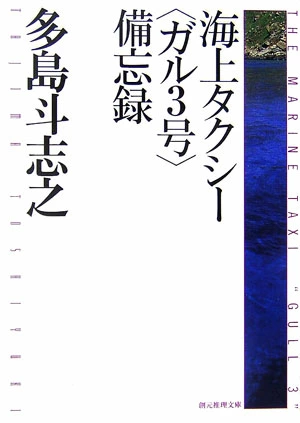 海上タクシー
〈ガル3号〉
備忘録
多島斗志之
THE MARINE TAXI "GULL 3"
TAJIMA TOSHIYUKI
創元推理文庫